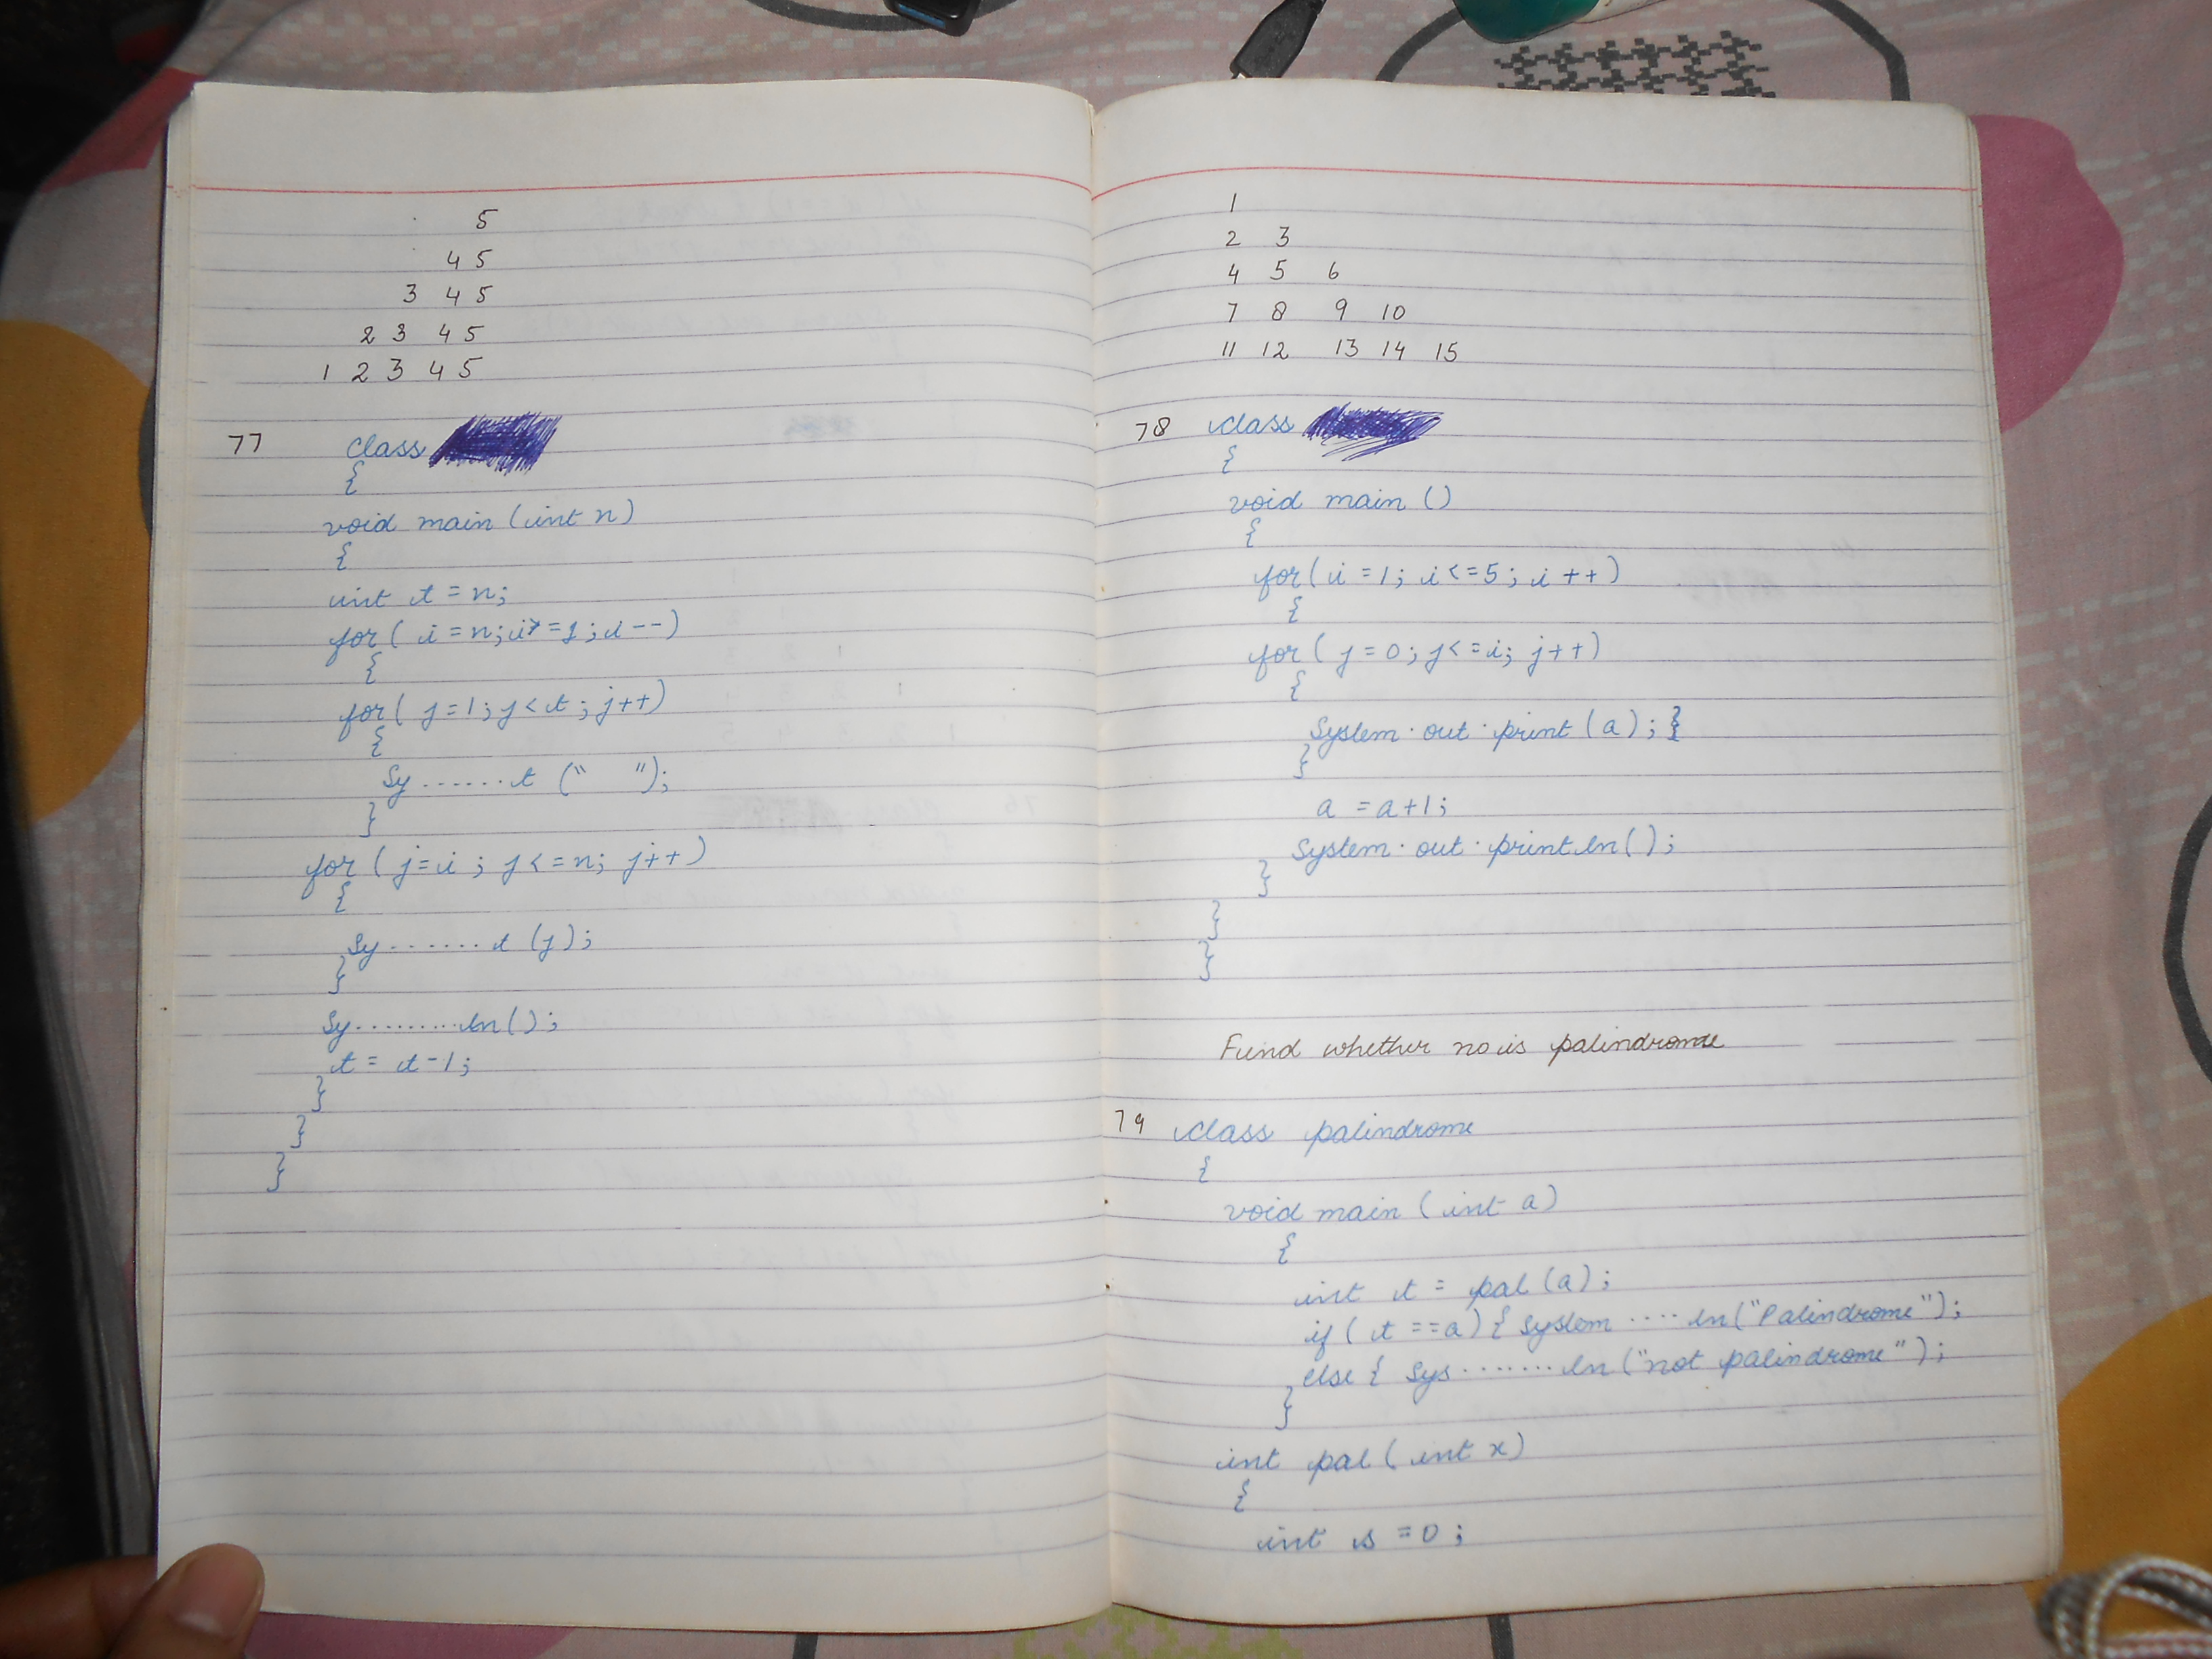 5
4 5
3 4 5
2 3 4 5
1 2 3 4 5
77 class
{
void main (int n)
{
int t = n;
for ( i = n; i>=1; i--)
{
for ( j=1; j<t; j++)
{
Sy ...... t (" ");
}
for ( j=i ; j<=n; j++)
{
Sy ....... t (j);
}
Sy .........ln();
t = t-1;
}
}
}
1
2 3
4 5 6
7 8 9 10
11 12 13 14 15
78 class
{
void main ()
{
for( i =1; i<=5; i++)
{
for( j=0; j<=i; j++)
{
System.out.print (a); }
}
a = a+1;
System.out.println();
}
}
}
Find whether no is palindrome
79 class palindrome
{
void main (int a)
{
int t = pal (a);
if ( t ==a) { System .... ln("Palindrome");
else { Sys ....... ln ("not palindrome");
}
int pal ( int x)
{
int s =0;